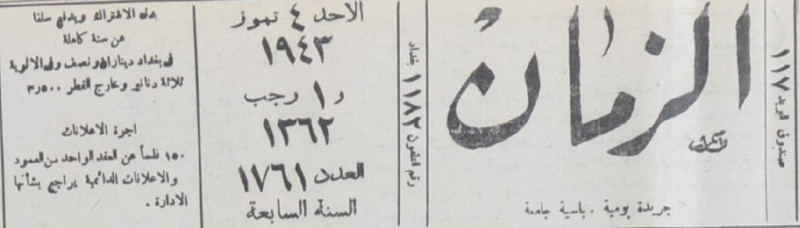 صندوق البريد ١١٧
الزمان
جريدة يومية . سياسية جامعة
رقم التلفون ١١٨٢ بغداد
الاحد ٤ تموز
١٩٤٣
و ١ رجب
١٣٦٢
العدد ١٧٦١
السنة السابعة
بدل الاشتراك ويدفع سلفا
عن سنة كاملة
في بغداد ديناران ونصف وفي الالوية
ثلاثة دنانير وخارج القطر ٣٥٠٠
اجرة الاعلانات
١٥٠ فلساً عن العقد الواحد من العمود
والاعلانات الدائمية يراجع بشأنها
الادارة .